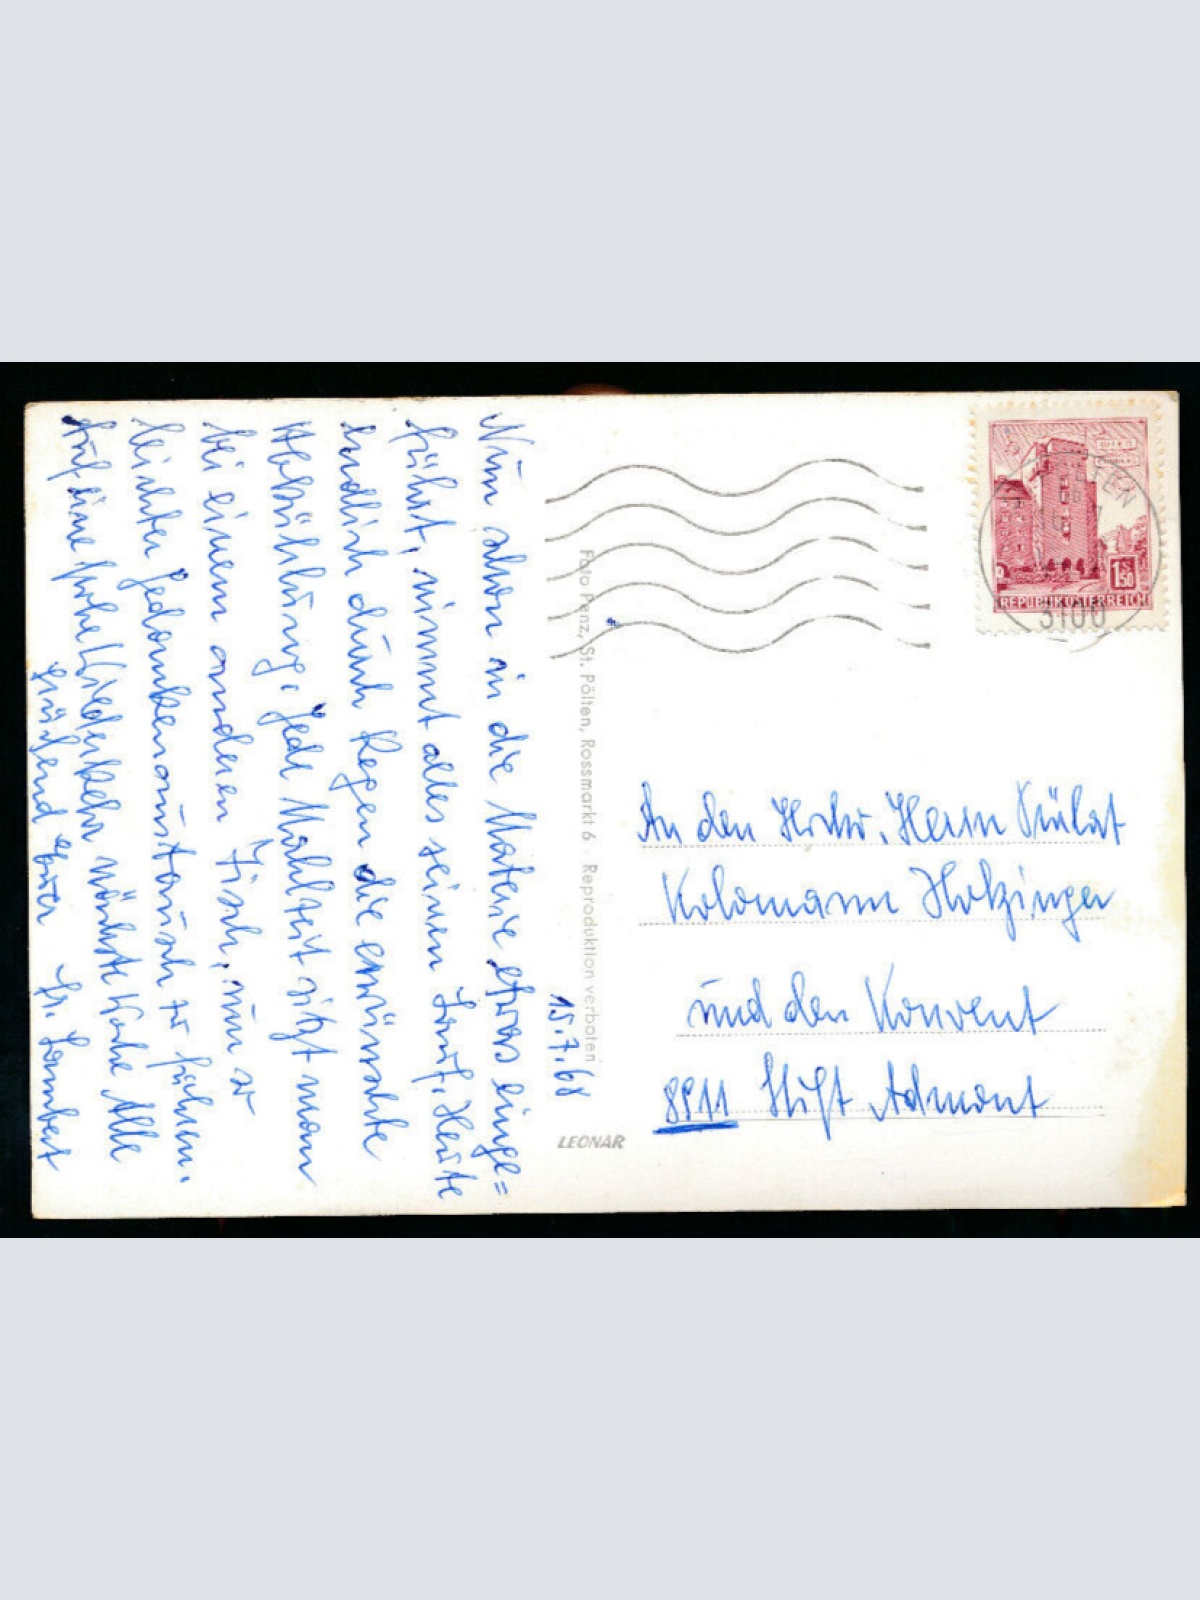 15.7.68
Nun schon in die Materie etwas einge=
führt, nimmt alles seinen Lauf. Heute
endlich durch Regen die erwünschte
Abkühlung. Jede Mahlzeit sitzt man
bei einem anderen Tisch, um so
leichter Gedankenaustausch zu führen.
Auf eine frohe Wiedersehn nächste Woche Alle
grüßend Euer fr. Lambert
Foto Penz, St. Pölten, Rossmarkt 6 · Reproduktion verboten
LEONAR
PÖLTEN
3100
1.50
REPUBLIK ÖSTERREICH
An den Hochw. Herrn Prälat
Kolomann Holzinger
und den Konvent
8911 Stift Admont